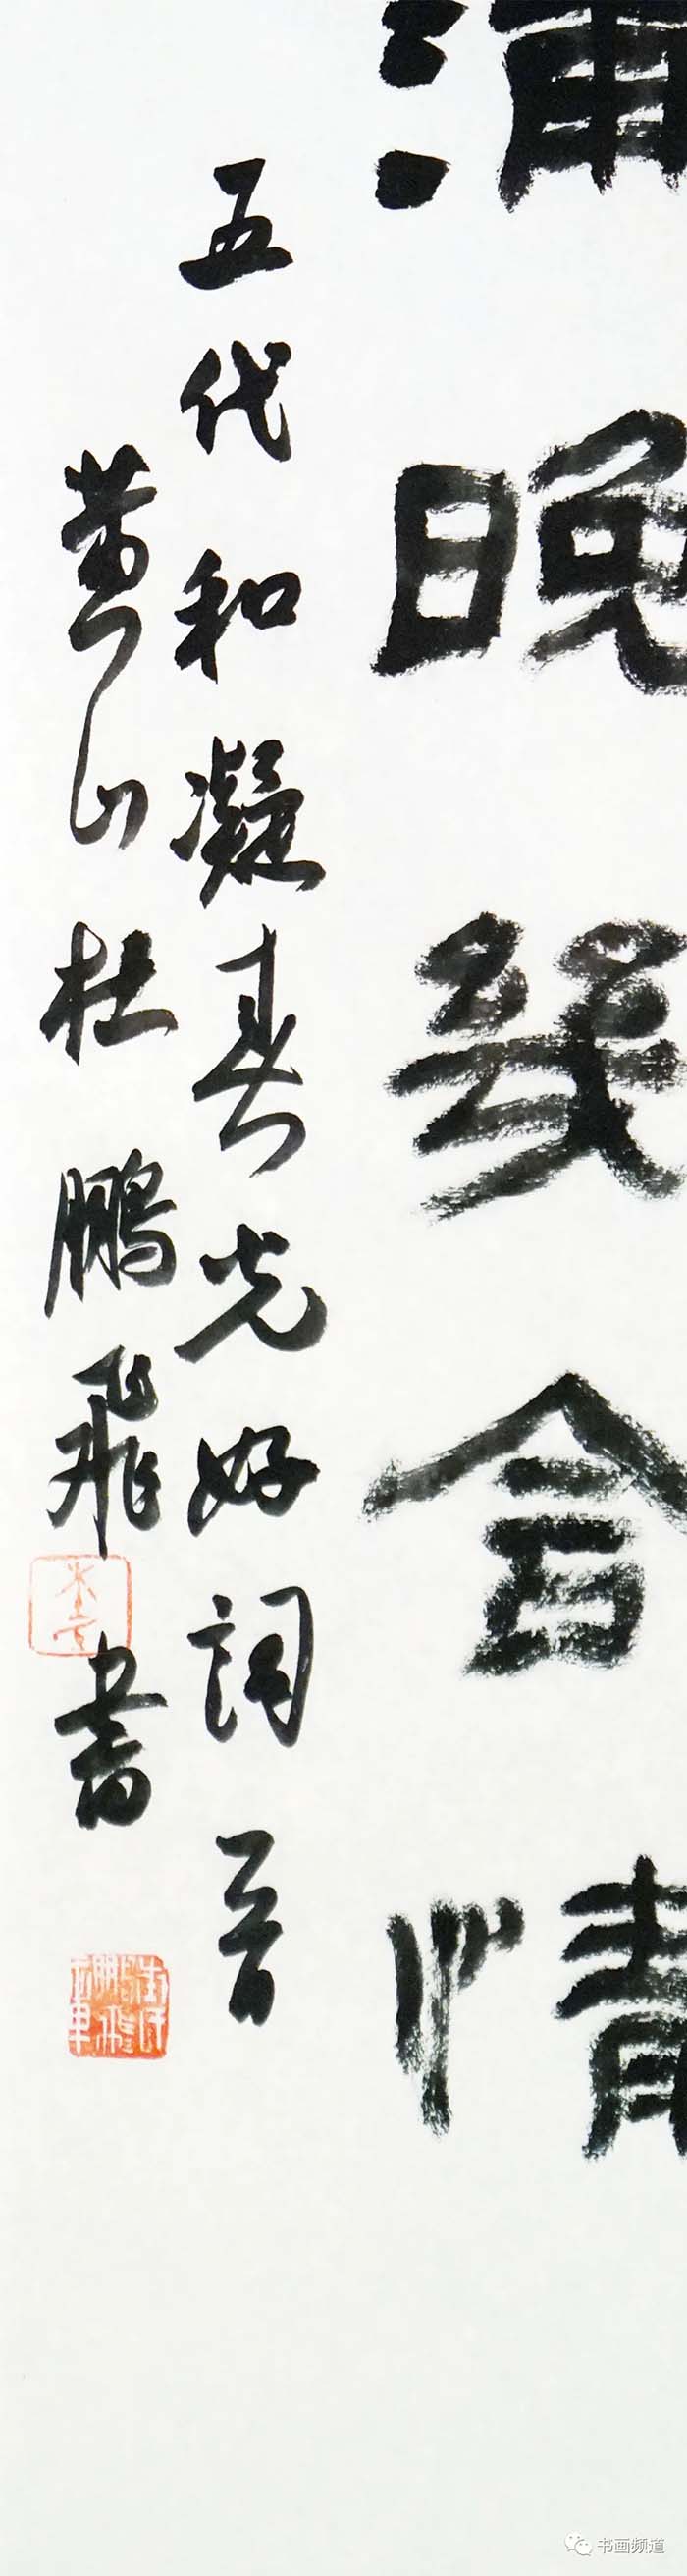 浦晚幾含情
五代和凝春光好詞一首
黄山杜鵬飛書
书画频道